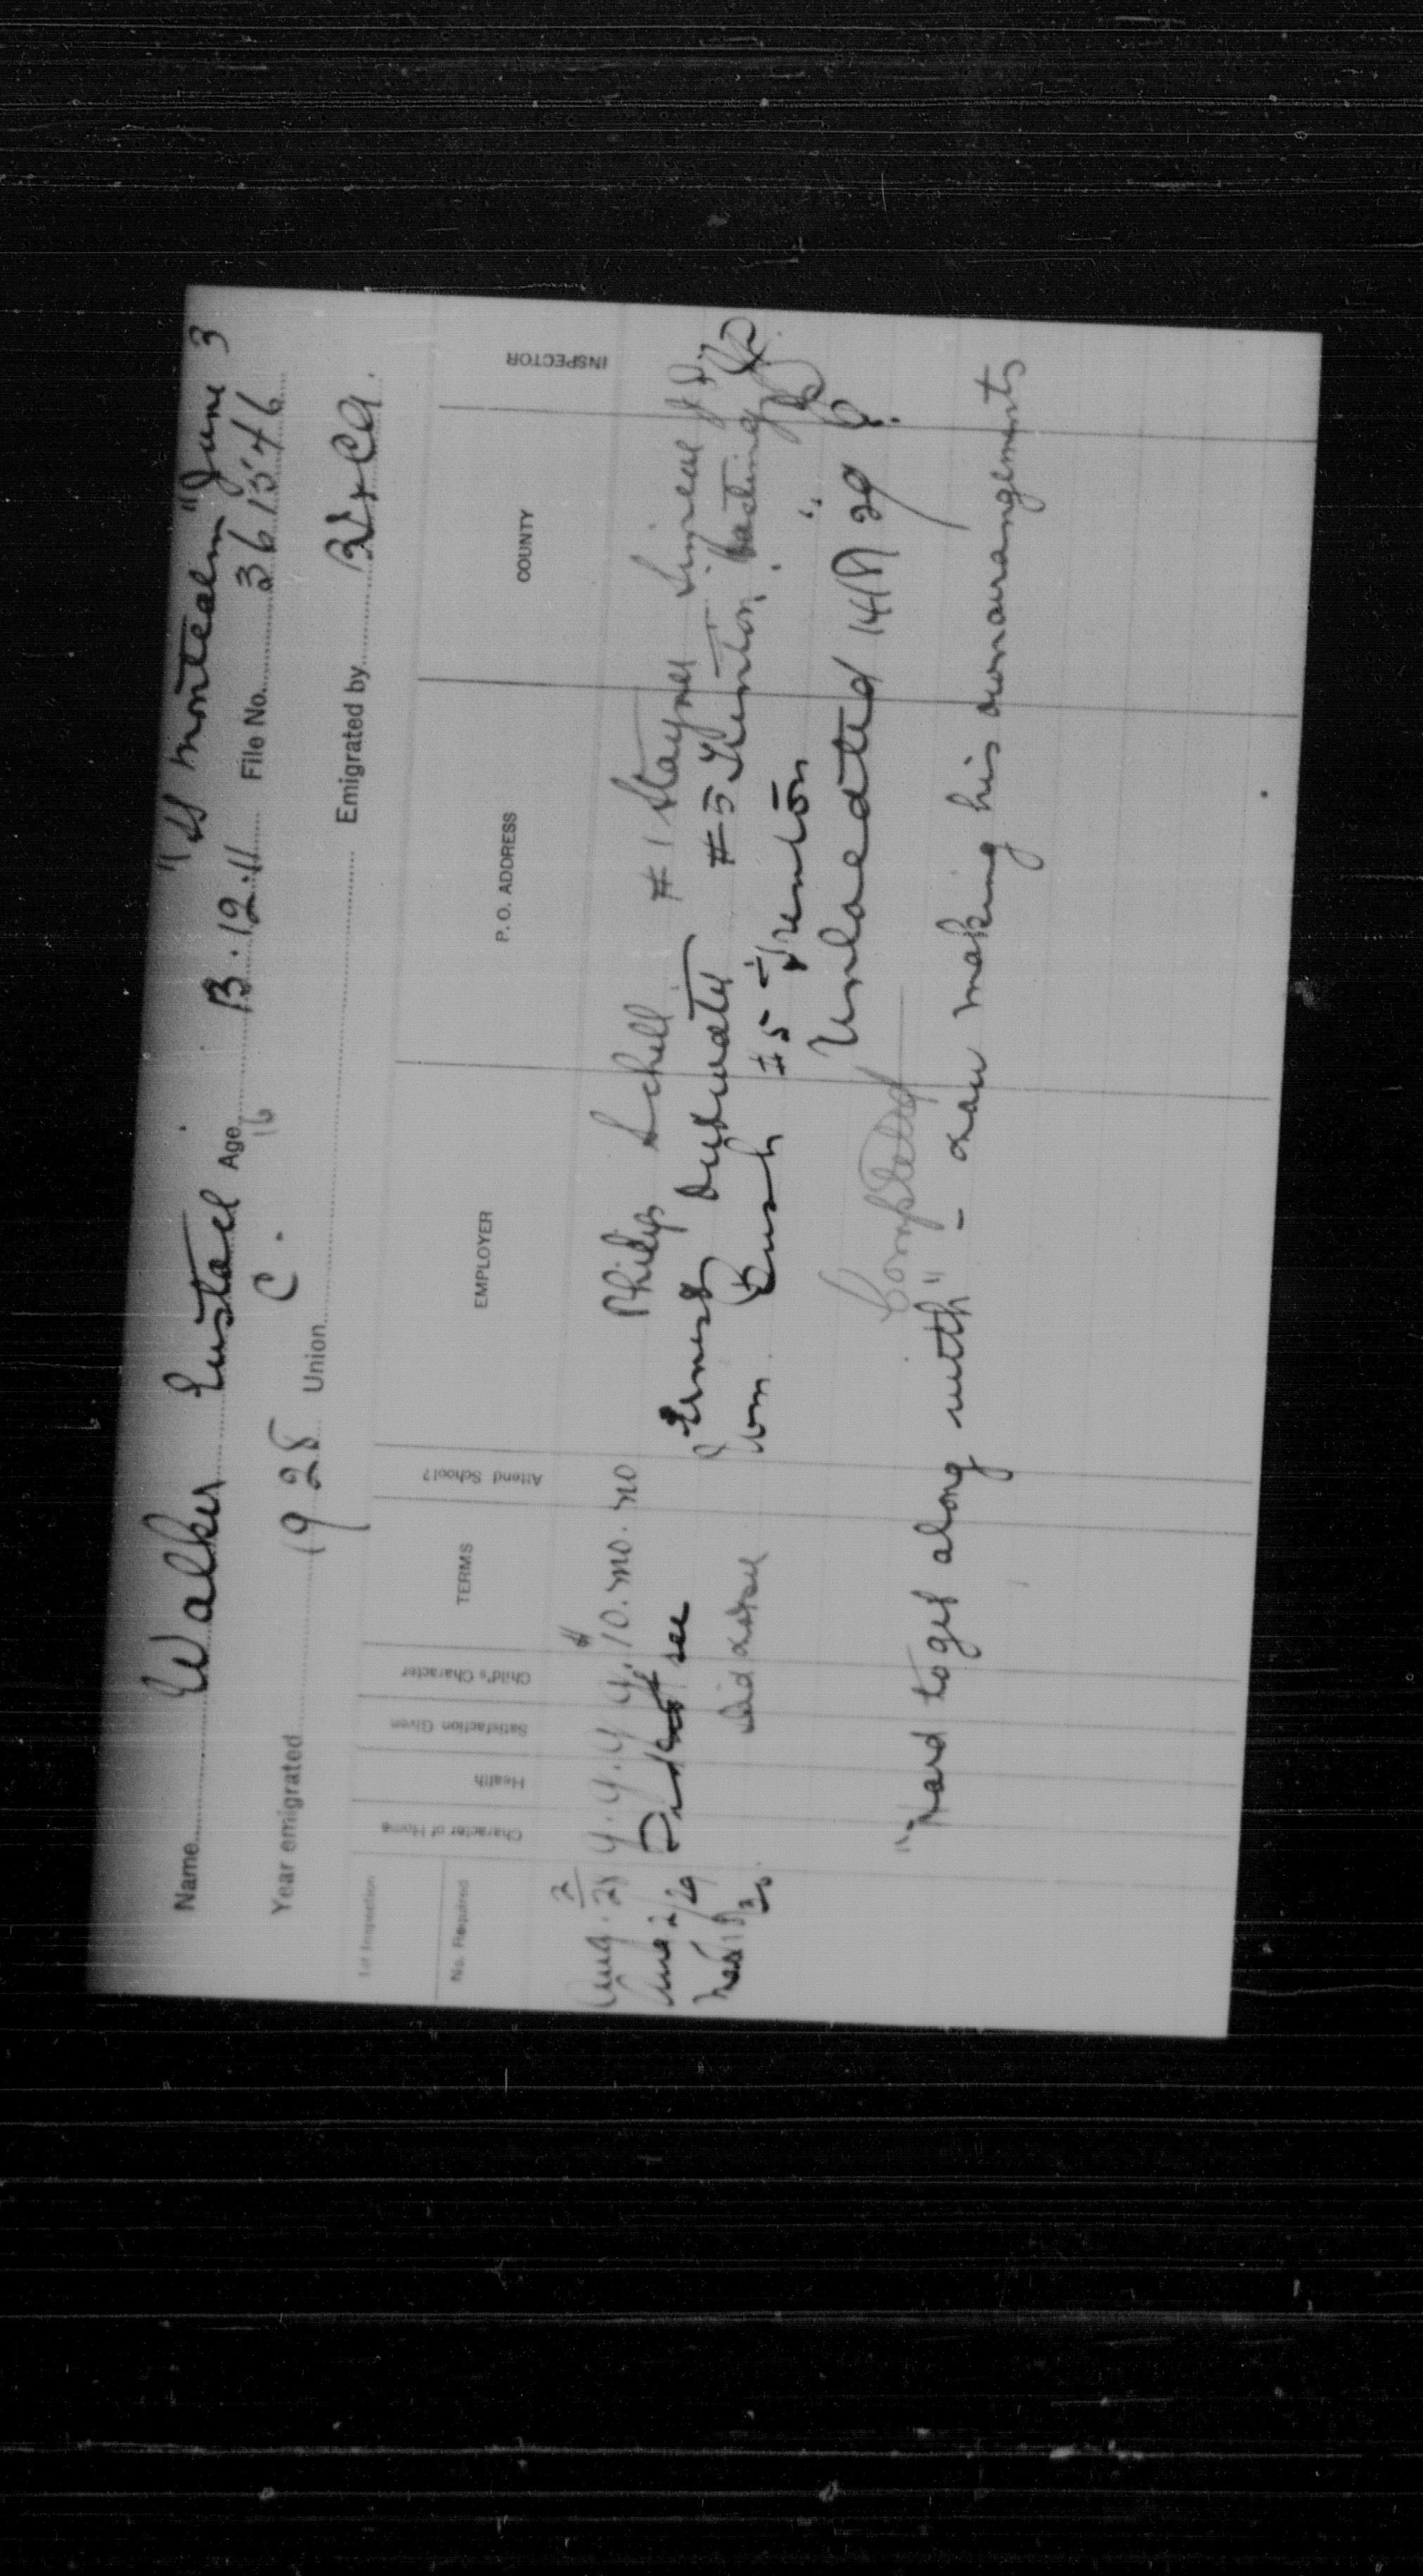 "SS Montcalm" June 3
Name Walker Eustace Age B. 12.11 File No. 361546
16
Year emigrated 1928 Union C. Emigrated by
1st Inspection
No. Required Character of Home Health Satisfaction Given Child's Character TERMS Attend School? EMPLOYER P. O. ADDRESS COUNTY INSPECTOR
Aug. 2/28 G. G. G. G. $10. mo. no Philip Schell #1 Stayner Simcoe
2/29 Did not see Ernest Outwater #5 Trenton Hastings
Did not see Wm Bush #5 Trenton "
Unlocated 29
Completed
"Hard to get along with" - now making his own arrangements